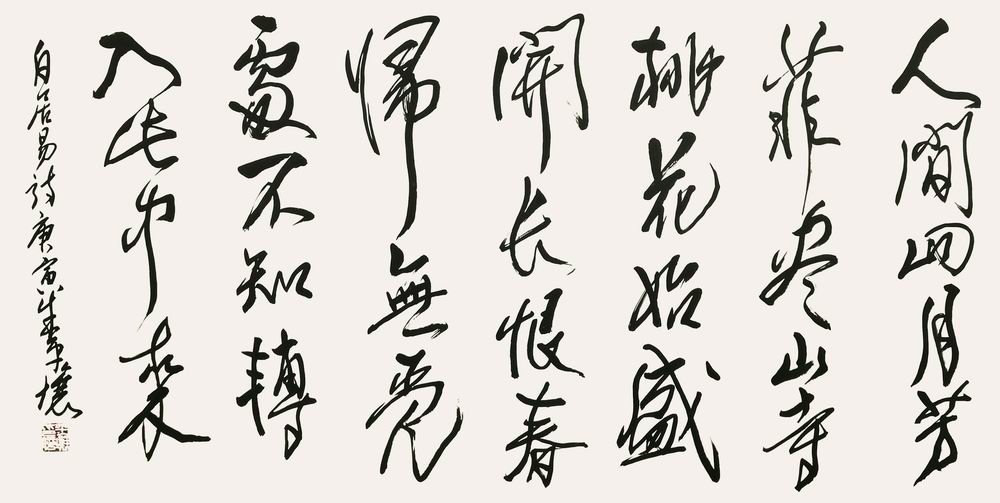 人間四月芳
菲尽山寺
桃花始盛
開长恨春
帰無覓
處不知轉
入此中來
白居易詩庚寅